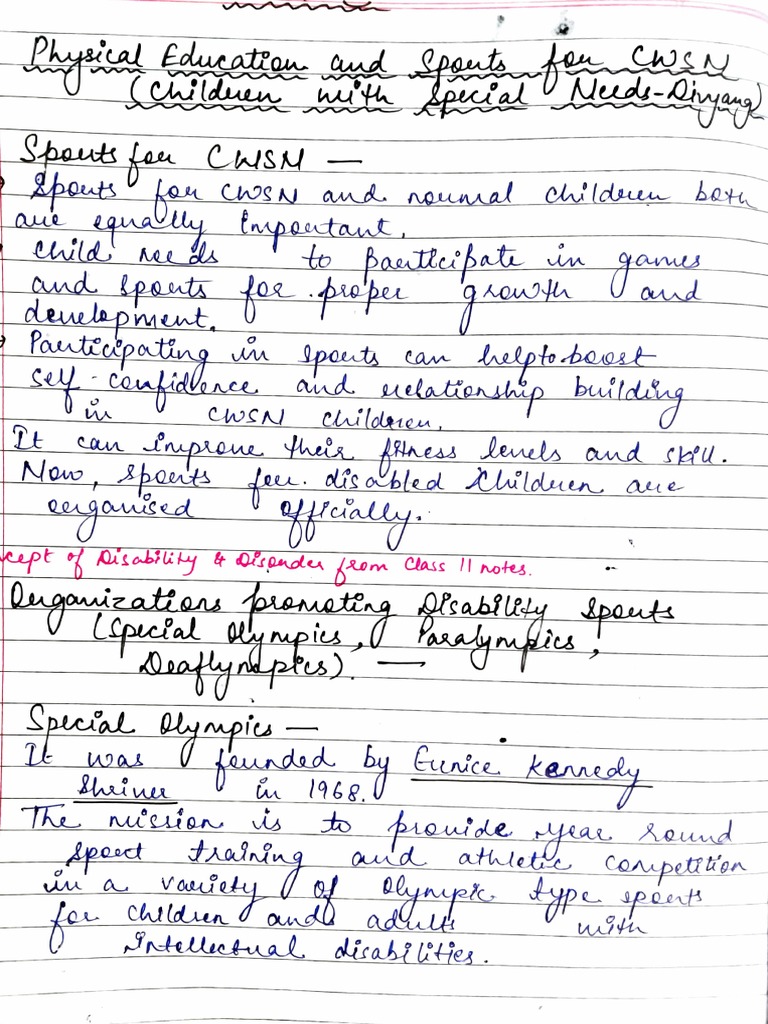 Physical Education and Sports for CWSN
(Children with Special Needs-Divyang)
Sports for CWSN —
Sports for CWSN and normal children both
are equally important.
Child needs to participate in games
and sports for proper growth and
development.
Participating in sports can help to boost
self-confidence and relationship building
in CWSN children.
It can improve their fitness levels and skill.
Now, sports for disabled children are
organised officially.
cept of Disability & Disorder from Class 11 notes.
Organizations promoting Disability sports
(Special Olympics, Paralympics,
Deaflympics). —
Special Olympics —
It was founded by Eunice Kennedy
Shriner in 1968.
The mission is to provide year round
sport training and athletic competition
in a variety of Olympic type sports
for children and adults with
intellectual disabilities.